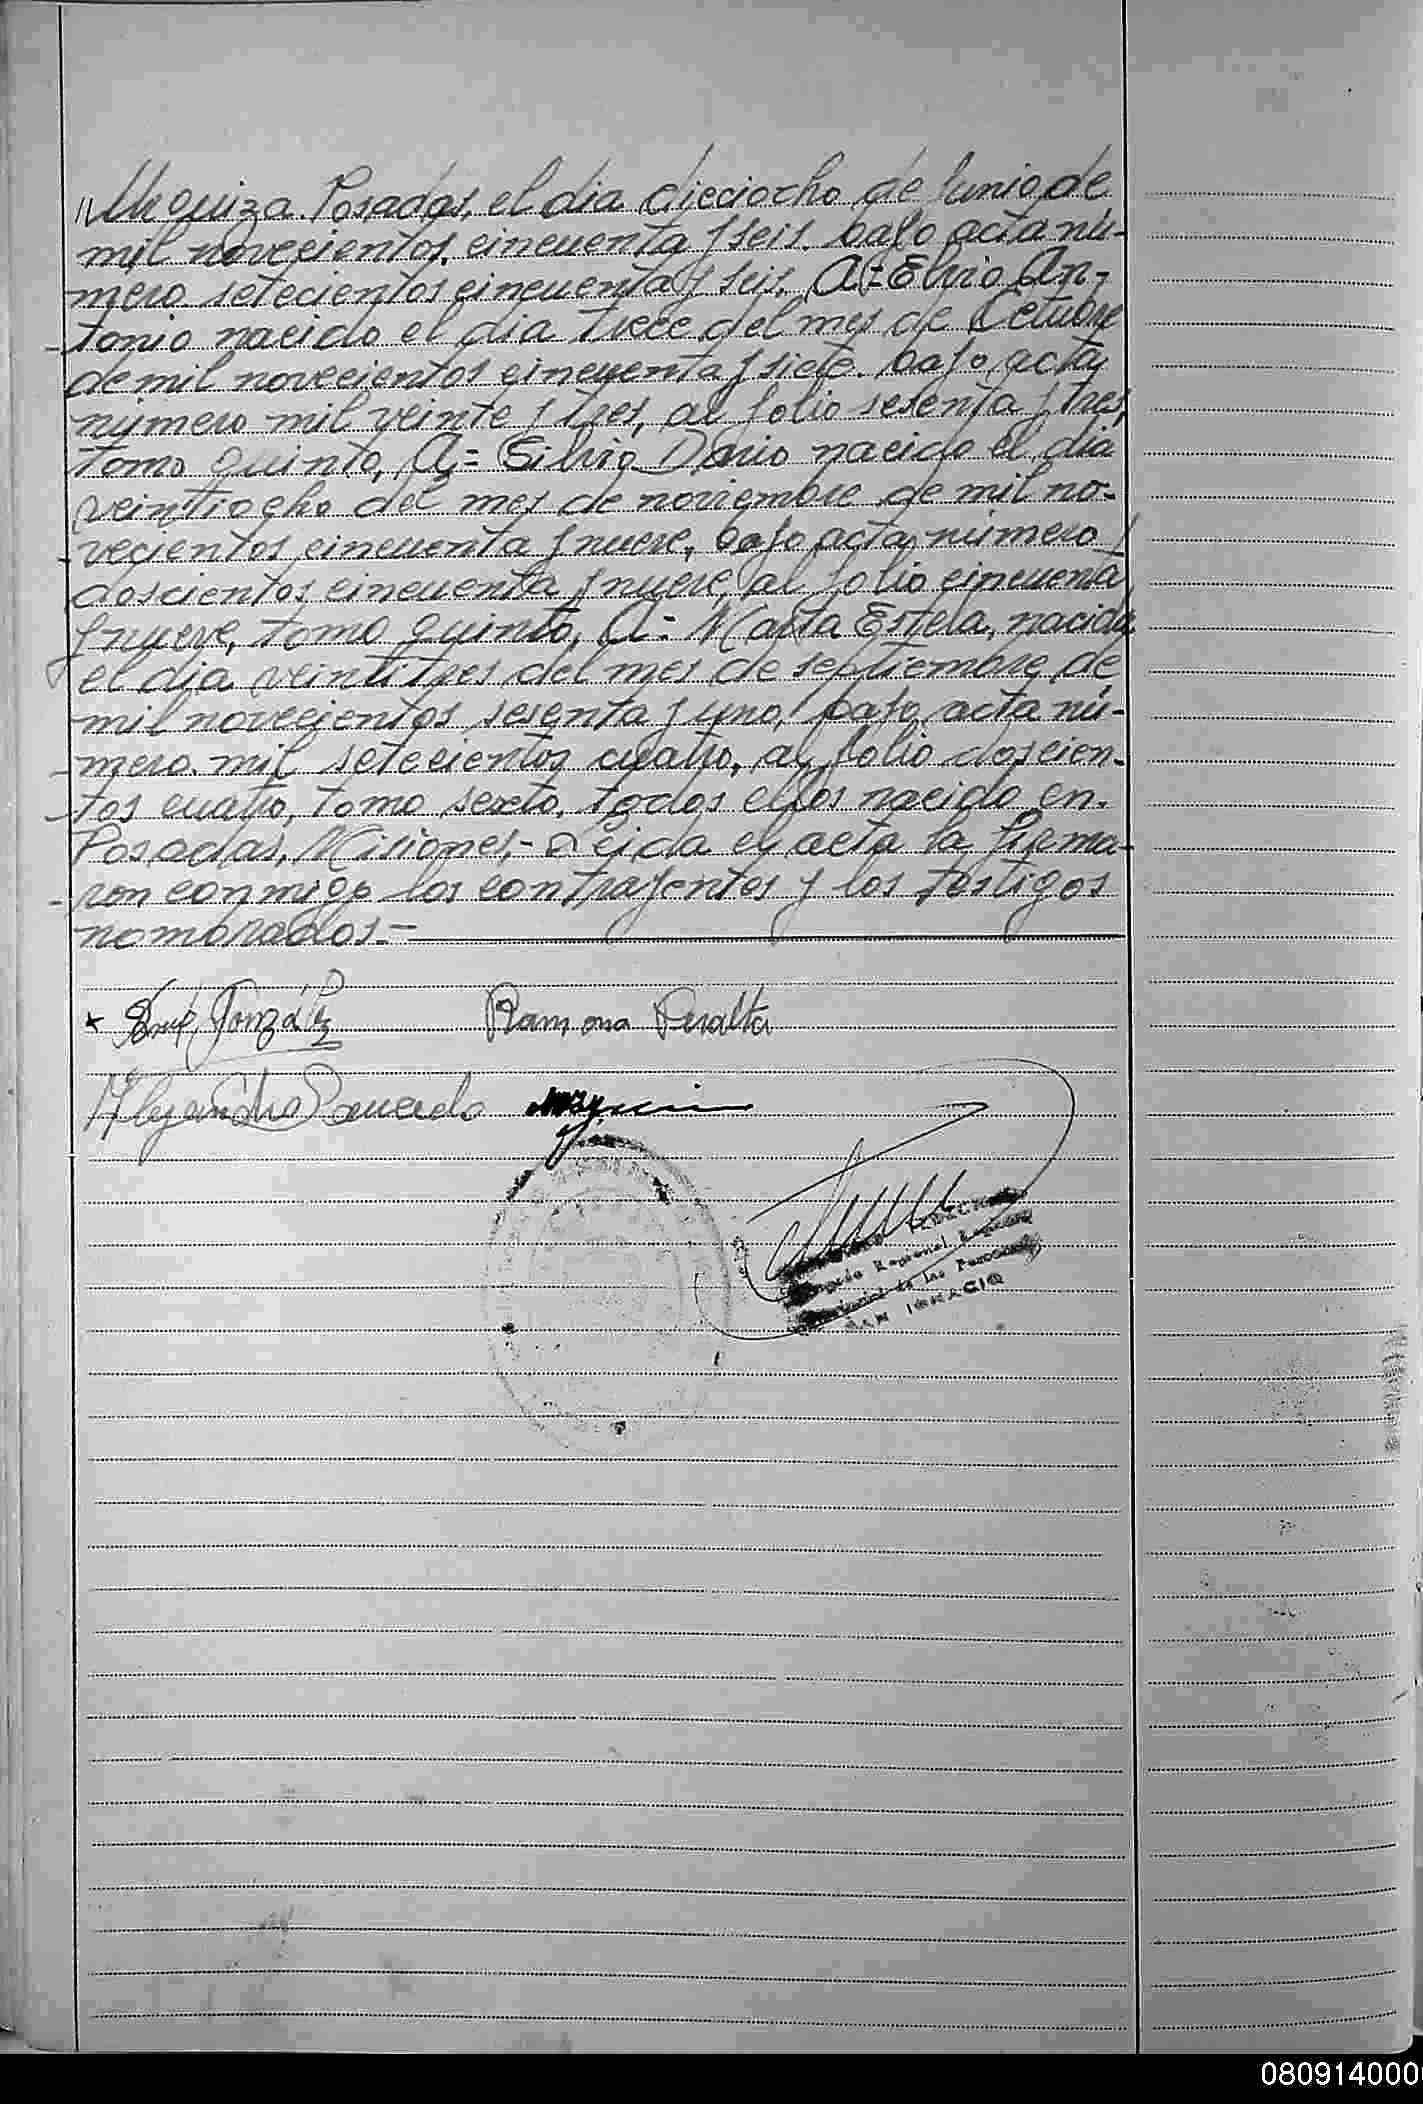 "Urquiza. Posadas, el dia dieciocho de Junio de
mil novecientos, cincuenta y seis. bajo acta nú-
mero setecientos cincuenta y seis. A= Elvio An-
tonio nacido el dia trece del mes de Octubre
de mil novecientos cincuenta y siete. bajo acta
número mil veinte y tres, al folio sesenta y tres,
tomo quinto, A= Silvio Dario nacido el dia
veintiocho del mes de noviembre de mil no-
vecientos cincuenta y nueve, bajo acta número
doscientos cincuenta y nueve, al folio cincuenta
y nueve, tomo quinto, A= Marta Estela, nacida
el dia veintitres del mes de septiembre de
mil novecientos sesenta y uno, bajo acta nú-
mero mil setecientos cuatro, al folio doscien-
tos cuatro, tomo sexto, todos ellos nacido en.
Posadas, Misiones,- Leida el acta la firma-
ron conmigo los contrayentes y los testigos
nombrados.-
González Ramona Peralta
Alejandro
Regional
de las Personas
SAN IGNACIO
080914000